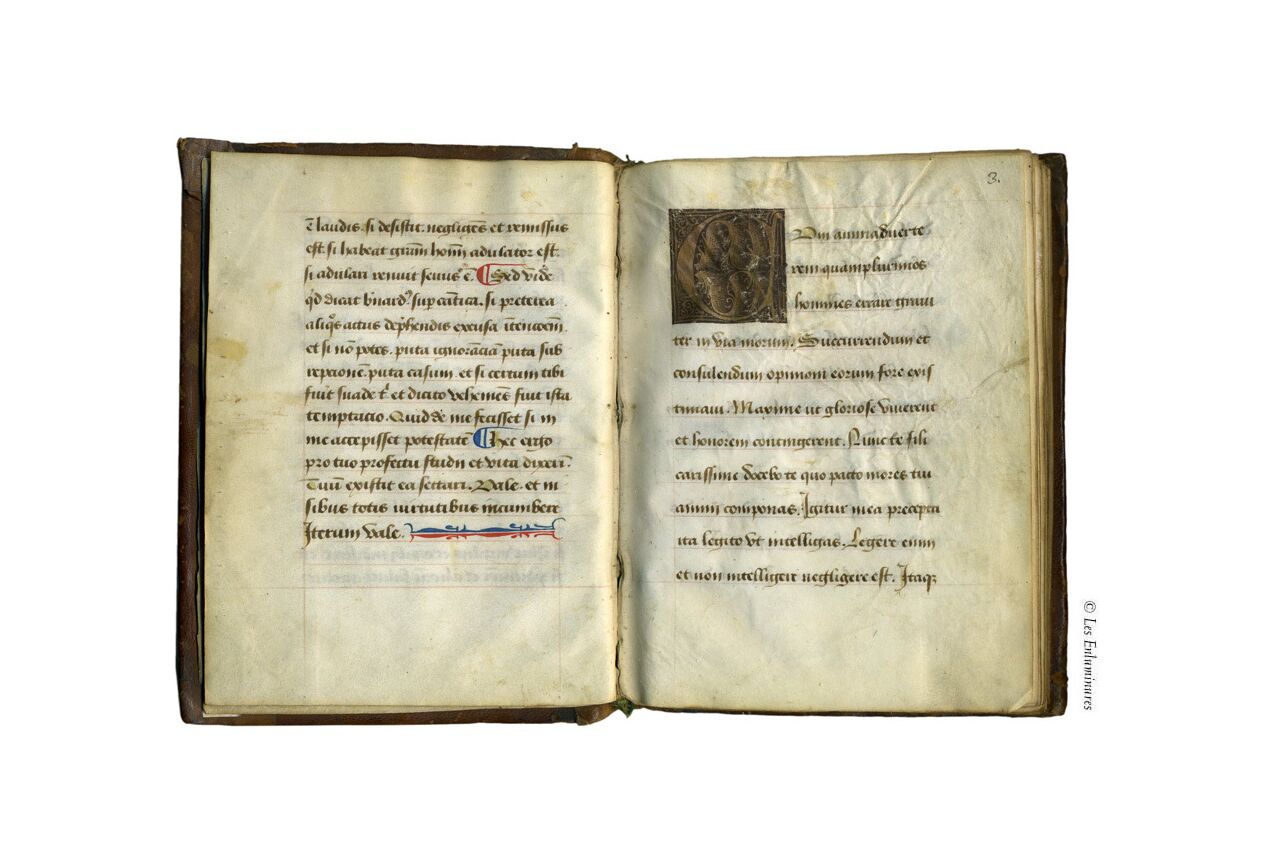 ē laudis. si desistit. negligēs et remissus
est. si habeat gr̄am hom̄i adulator est.
si adulari renuit seuus ē. Sed vide
qd dicat b'nard9 sup cātica. si preterea
aliq̄s actus dep̄hendis excusa ītencōem.
et si nō potes. puta ignorāciā puta sub
repcionē. puta casum. et si certum tibi
fuit suade t' et dicito vehemēs fuit ista
temptacio. Quid de me fecisset si in
me accepisset potestatē Hec ergo
pro tuo profectu studii et vita dixeri.
Tuū existit ea sectari. Vale. et in
sibus totis uirtutibus incumbere
Iterum vale.
3.
Cum animaduerte
rem quamplurimos
homines errare graui
ter in via morum. Succurrendum et
consulendum opinioni eorum fore exis
timaui. Maxime ut gloriose viuerent
et honorem contingerent. Nunc te fili
carissime docebo te quo pacto mores tui
animi componas. Igitur mea precepta
ita legito vt intelligas. Legere enim
et non intelligere negligere est. Itaq3
© Les Enluminures